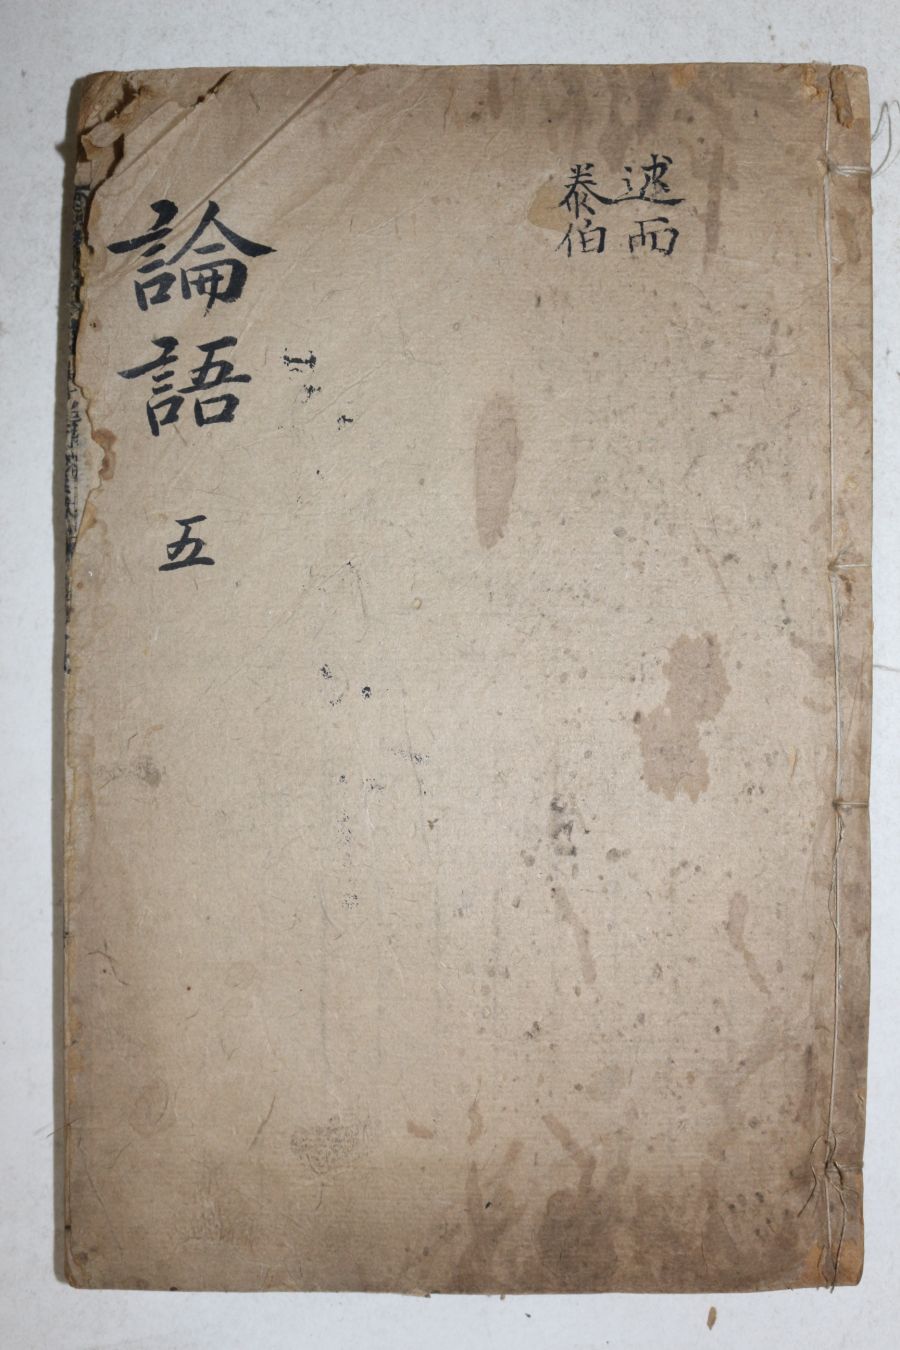 述而
泰伯
論語 五